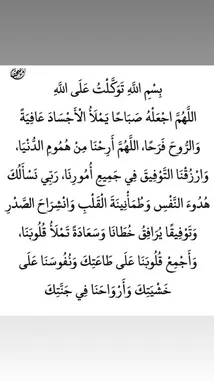 بِسْمِ اللَّهِ تَوَكَّلْتُ عَلَى اللَّهِ
اللَّهُمَّ اجْعَلْهُ صَبَاحًا يَمْلَأُ الْأَجْسَادَ عَافِيَةً
وَالرُّوحَ فَرَحًا، اللَّهُمَّ أَرِحْنَا مِنْ هُمُومِ الدُّنْيَا،
وَارْزُقْنَا التَّوْفِيقَ فِي جَمِيعِ أُمُورِنَا، رَبِّي نَسْأَلُكَ
هُدُوءَ النَّفْسِ وَطُمَأْنِينَةَ الْقَلْبِ وَانْشِرَاحَ الصَّدْرِ
وَتَوْفِيقًا يُرَافِقُ خُطَانَا وَسَعَادَةً تَمْلَأُ قُلُوبَنَا،
وَأَجْمِعْ قُلُوبَنَا عَلَى طَاعَتِكَ وَنُفُوسَنَا عَلَى
خَشْيَتِكَ وَأَرْوَاحَنَا فِي جَنَّتِكَ